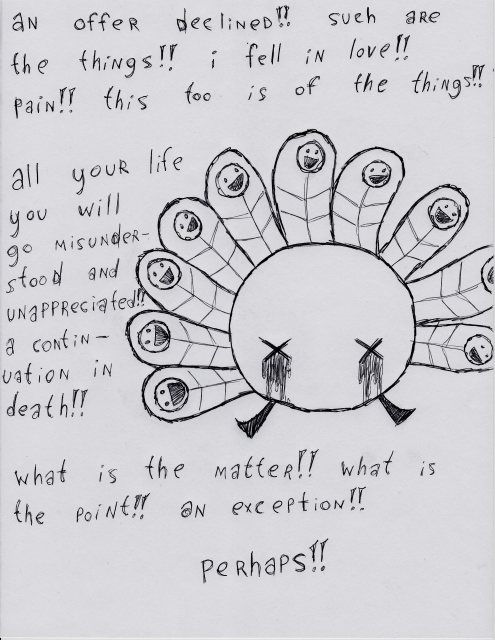 aN offeR declINeD!! such aRe
the thiNgs!! i fell iN love!!
paiN!! this too is of the things!!
all youR life
you will
go misuNdeR-
stood aNd
uNappReciated!!
a coNtiN-
uatioN iN
death!!
what is the matteR!! what is
the poiNt!! aN exceptioN!!
peRhaps!!